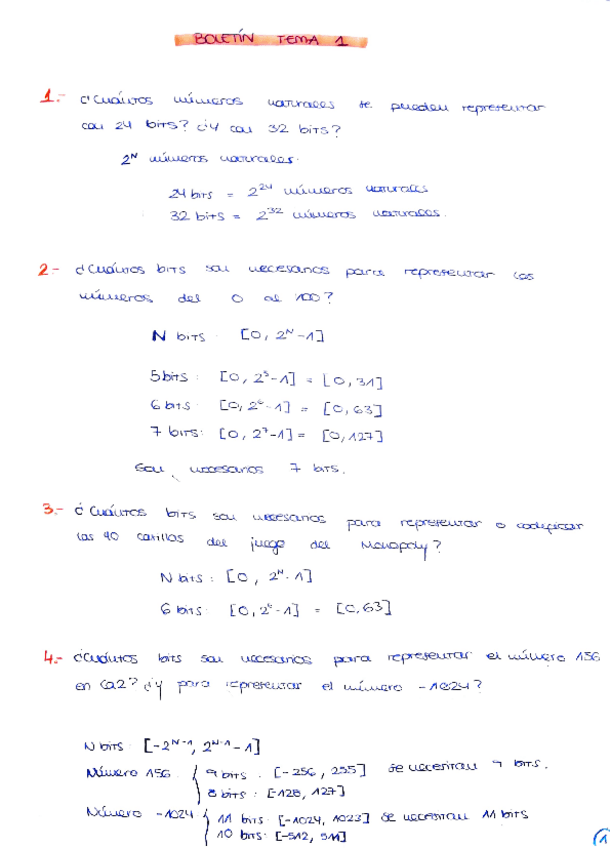 BOLETÍN TEMA 1
1.- ¿Cuántos números naturales se pueden representar
con 24 bits? ¿Y con 32 bits?
2^N números naturales.
24 bits = 2^24 números naturales
32 bits = 2^32 números naturales.
2- ¿Cuántos bits son necesarios para representar los
números del 0 al 100?
N bits: [0, 2^N-1]
5 bits: [0, 2^5-1] = [0, 31]
6 bits: [0, 2^6-1] = [0, 63]
7 bits: [0, 2^7-1] = [0, 127]
Son necesarios 7 bits.
3.- ¿Cuántos bits son necesarios para representar o codificar
las 40 casillas del juego del Monopoly?
N bits: [0, 2^N-1]
6 bits: [0, 2^6-1] = [0, 63]
4.- ¿Cuántos bits son necesarios para representar el número 156
en Ca2? ¿Y para representar el número -1024?
N bits: [-2^N-1, 2^N-1 -1]
Número 156 { 9 bits: [-256, 255] se necesitan 9 bits.
8 bits: [-128, 127]
Número -1024 { 11 bits: [-1024, 1023] se necesitan 11 bits
10 bits: [-512, 511]
1